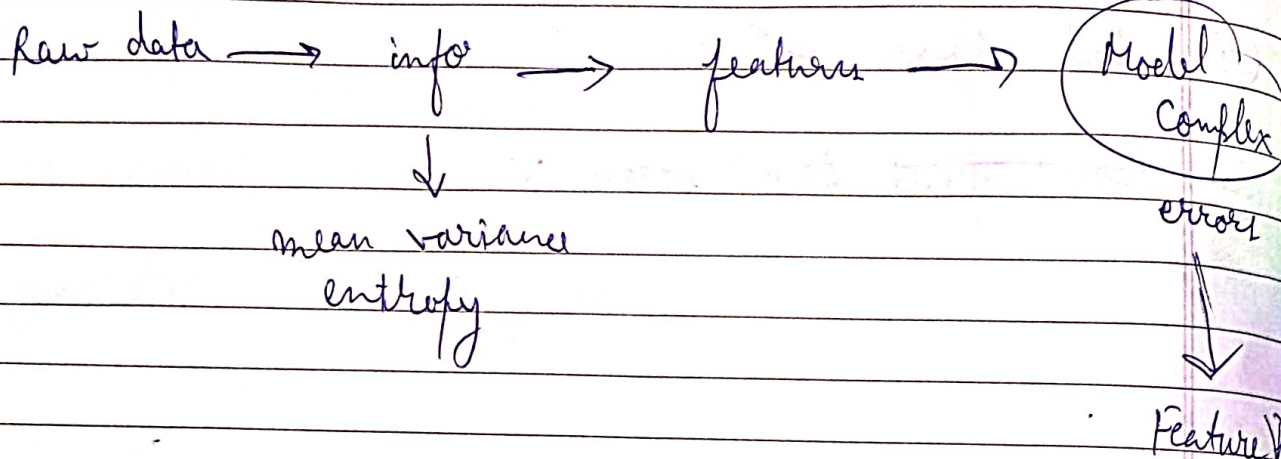 Raw data → info → features → Model
Complex
errors
mean variance
entropy
Feature